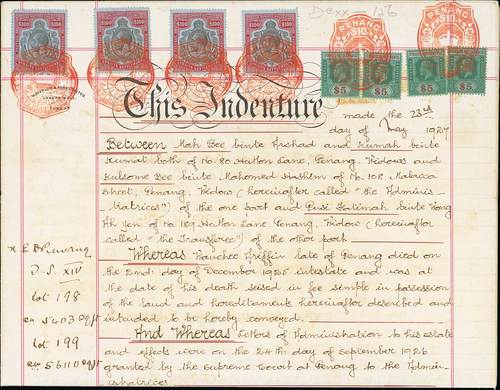 Dexx-126
PENANG
$10.
PENANG
$10.
$100 $100 $100 $100
$5 $5 $5 $5
This Indenture made the 23rd
day of May 1927
Between Mah Bee binte Arshad and Rumah binte
Kumat both of No. 80 Hutton Lane, Penang, Widows and
Kulsome Bee binte Mahomed Hashim of No. 108 Malacca
Street, Penang, Widow (hereinafter called "the Adminis-
tratrices") of the one part and Pusi Fatimah binte Wong
Ah Jen of No. 189 Hutton Lane, Penang, Widow (hereinafter
called "the Transferee") of the other part
Whereas Vauchee Ariffin late of Penang died on
the 2nd. day of December 1925 intestate and was at
the date of his death seised in fee simple in possession
of the land and hereditaments hereinafter described and
intended to be hereby conveyed.
And Whereas Letters of Administration to his estate
and effects were on the 24th day of September 1926
granted by the Supreme Court at Penang to the Admin-
istratrices
N. E. D. Penang
T. S. XIV
Lot 198
5403 sqft
Lot 199
5611 sqft